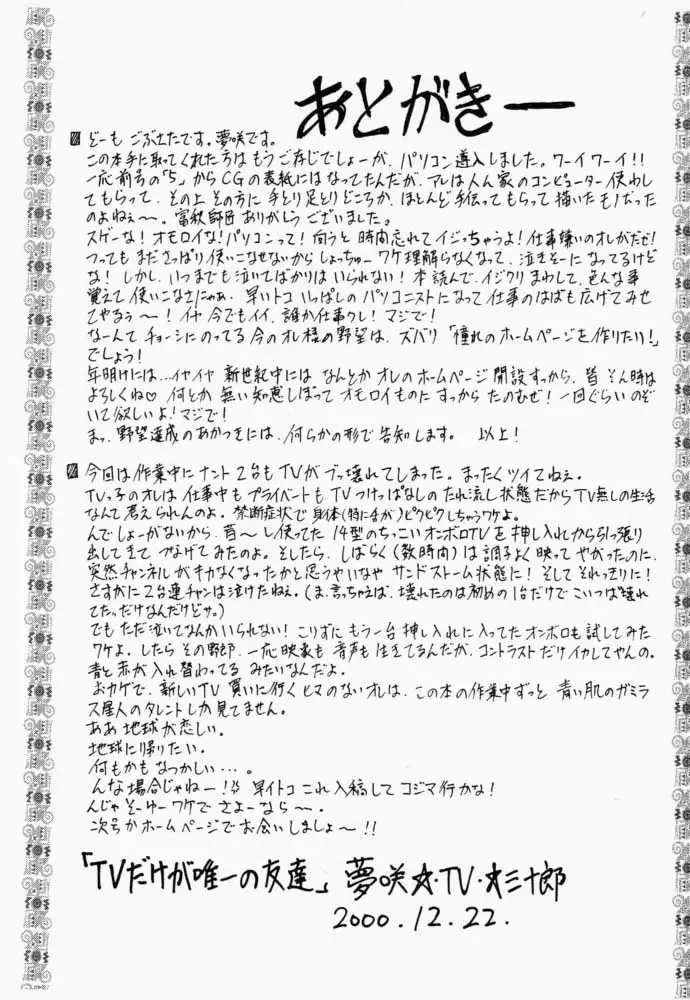 あとがきー
どーも ごぶさたです。夢咲です。
この本手に取ってくれた方は もうご存じでしょーが、パソコン導入しました。ワーイワーイ!!
一応前号の「5」からCGの表紙にはなってたんだが、アレは人ん家のコンピューター使わし
てもらって、その上その方に手とり足とりどころか、ほとんど手伝ってもらって描いたモノだった
のよねぇ〜。富秋師匠ありがとうございました。
スゲーな!オモロイな!パソコンって!向うと時間忘れてイジっちゃうよ!仕事嫌いのオレがだぜ!
つってもまださっぱり使いこなせないからしょっちゅーワケ理解らなくなって、泣きそーになってるけど
な!しかし、いつまでも泣いてばかりはいられない!本読んで、イジクリまわして、色んな事
覚えて使いこなさにゃあ。早いトコいっぱしのパソコニストになって仕事のはばも広げてみせ
てやるぅ〜!イヤ今でもイイ、誰か仕事クレ!マジで!
なーんてチョーシにのってる今のオレ様の野望は、ズバリ「憧れのホームページを作りたい!」
でしょう!
年明けには…イヤイヤ新世紀中には なんとかオレのホームページ開設すっから、皆そん時は
よろしくね♡ 何とか無い知恵しぼってオモロイものにすっから たのむぜ!一回ぐらいのぞ
いて欲しいよ!マジで!
まっ、野望達成のあかつきには、何らかの形で告知します。 以上!
今回は作業中にナント2台もTVがブッ壊れてしまった。まったくツイてねぇ。
TVっ子のオレは仕事中もプライベートもTVつけっぱなしのたれ流し状態だからTV無しの生活
なんて考えられんのよ。禁断症状で身体(特に舌が)ピクピクしちゃうワケよ。
んでしょーがないから、昔〜し使ってた14型のちっこいオンボロTVを押し入れから引っ張り
出してきてつなげてみたのよ。そしたら、しばらく(数時間)は調子よく映ってやがったのに、
突然チャンネルがキカなくなったかと思うやいなやサンドストーム状態に!そしてそれっきりに!
さすがに2台連チャンは泣けたねぇ。(ま、言っちゃえば、壊れたのは初めの1台だけでこいつは"壊れ
てた"だけなんだけどサ。)
でもただ泣いてなんかいられない!こりずにもう一台押し入れに入ってたオンボロも試してみた
ワケよ。したらその野郎、一応映像も音声も生きてるんだが、コントラストだけイカレてやんの。
青と赤が入れ替わってるみたいなんだよ。
おカゲで、新しいTV買いに行くヒマのないオレは、この本の作業中ずっと青い肌のガミラ
ス星人のタレントしか見てません。
ああ地球が恋しい。
地球に帰りたい。
何もかもなつかしい…。
んな場合じゃねー!早イトコこれ入稿してコジマ行かな!
んじゃそーゆーワケでさよーなら〜。
次号かホームページでお会いしましょ〜!!
「TVだけが唯一の友達」夢咲☆・TV・☆三十郎
2000.12.22.